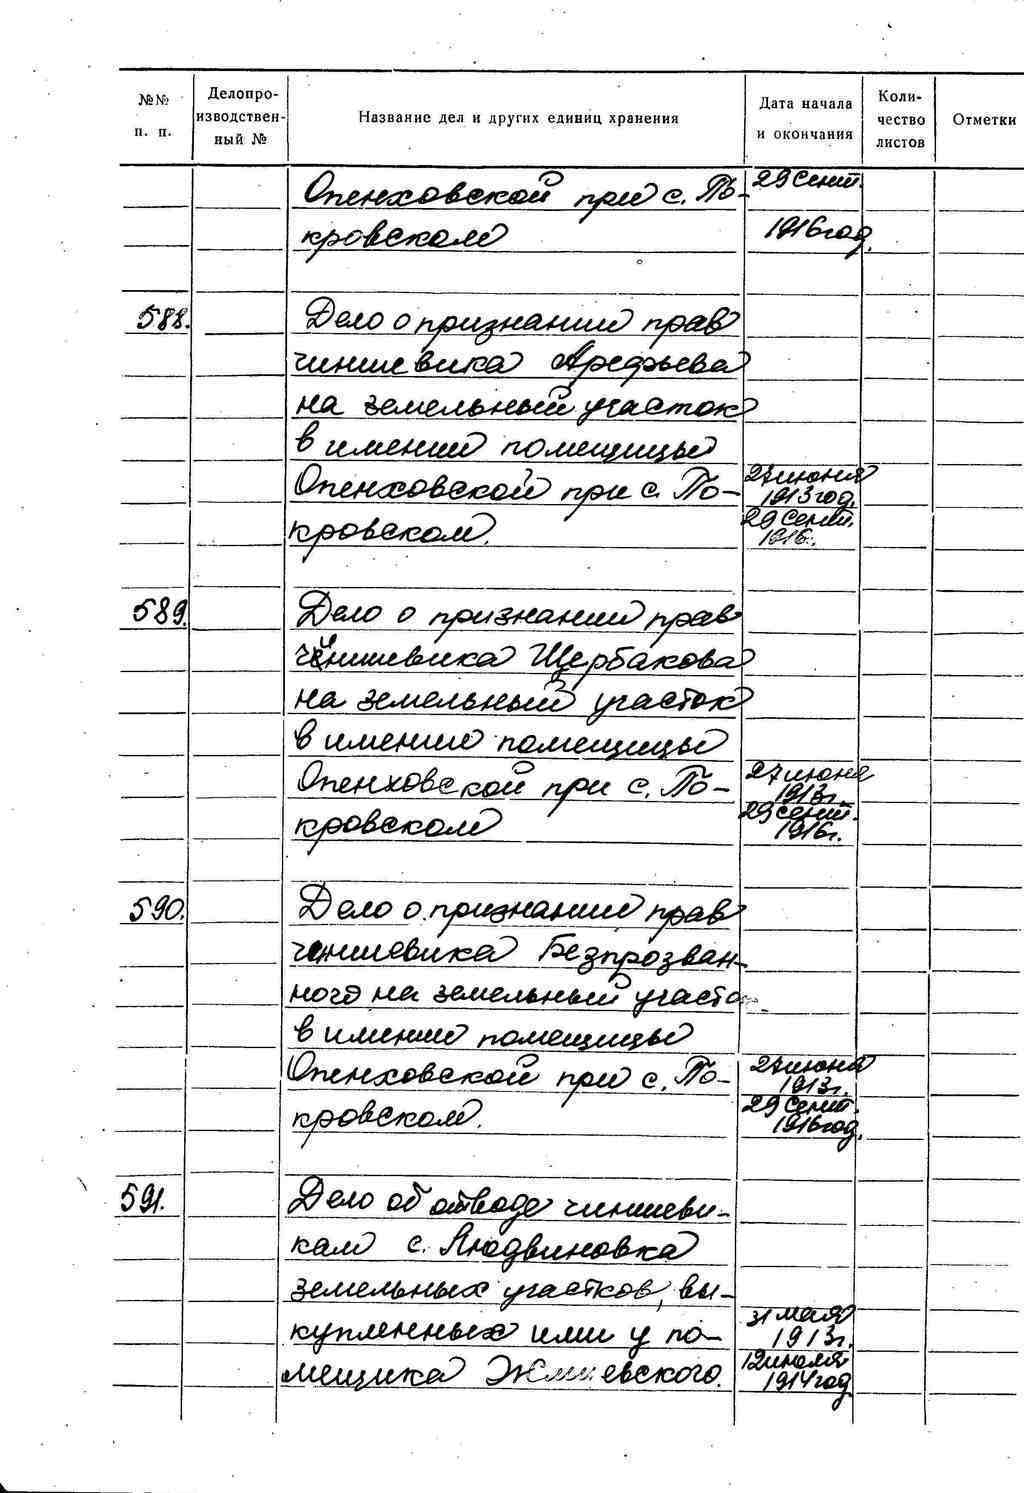 №№ п. п.
Делопро-
изводствен-
ный №
Название дел и других единиц хранения
Дата начала
и окончания
Коли-
чество
листов
Отметки
Опенховской при с. По- 29 сент.
кровском 1916 год.
588. Дело о признании прав
чиншевика Арефьева
на земельный участок
в имении помещицы
Опенховской при с. По- 27 июня
1913 год.
кровском. 29 сент.
1916.
589. Дело о признании прав
чиншевика Щербакова
на земельный участок
в имении помещицы
Опенховской при с. По- 27 июня
1913г.
кровском 29 сент.
1916г.
590. Дело о признании прав
чиншевика Безпрозван-
ного на земельный участо
в имении помещицы
Опенховской при с. По- 27 июня
1913г.
кровском. 29 сент.
1916 год.
591. Дело об отводе чиншеви-
кам с. Людвиновка
земельных участков, вы-
купленных ими у по- 31 мая
1913г.
мещика 12 июля
1914 год